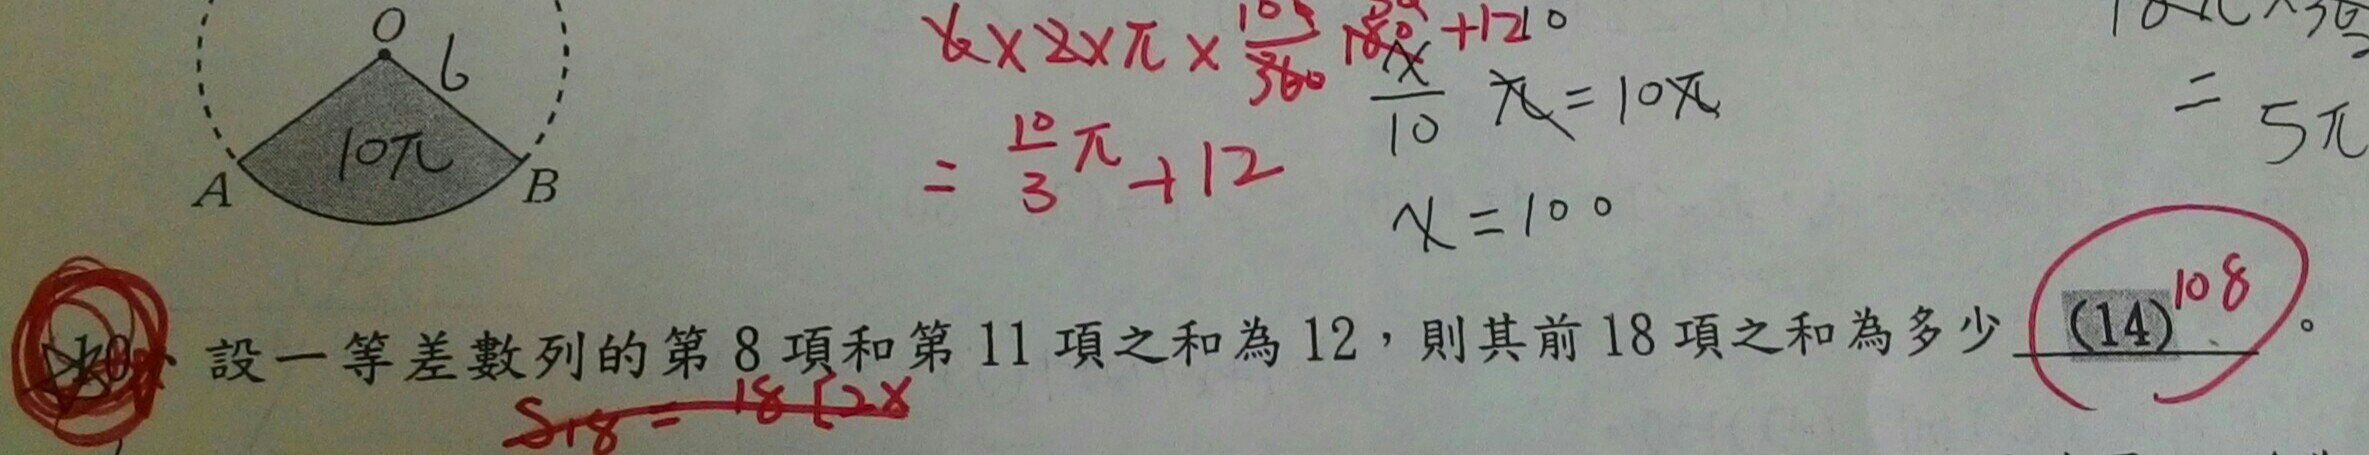 O 6
10π
A B
6×2×π× 100/360 +12
= 10/3 π +12
x/10 π = 10π
x = 100
= 5π
10. 設一等差數列的第 8 項和第 11 項之和為 12，則其前 18 項之和為多少 (14) 108 。
S18 = 18[2×